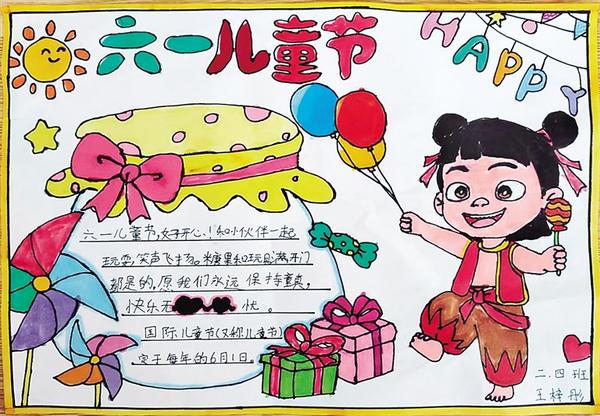 六一儿童节
HAPPY
六一儿童节,好开心!和小伙伴一起
玩耍,笑声飞扬。糖果和玩具满天门
都是的,原我们永远保持童真,
快乐无忧。
国际儿童节(又称儿童节)
定于每年的6月1日。
二.四班
王梓彤